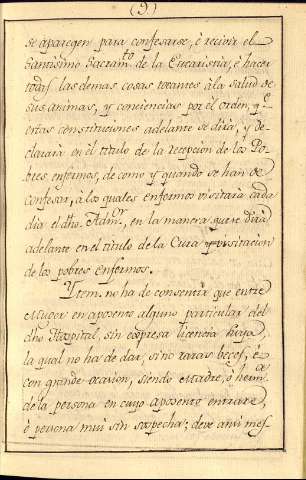 (9)
se aparegen para confesarse, è recivir el
Santissimo Sacram.to de la Eucaristia, è hacer
todas las demas cosas tocantes à la salud de
sus animas, y conciencias por el orden, q.e
estas constituciones adelante se dirà, y de-
clararà en èl titulo de la recepcion de los Po-
bres enfermos, de como y quando se han de
confesar, à los quales enfermos visitarà cada
dia el dho. Adm.or, en la manera que se dirà
adelante en el titulo de la Cura y visitacion
de los pobres Enfermos.
Ytem. no ha de consentir que entre
Muger en aposento alguno particular del
dho Hospital, sin expresa licencia suya,
la qual no ha de dar, sino raras beces, è
con grande ocasion, siendo Madre, ò herm.a
de la persona en cuyo aposento entrare,
ò persona mui sin sospecha; deve ansi mes-